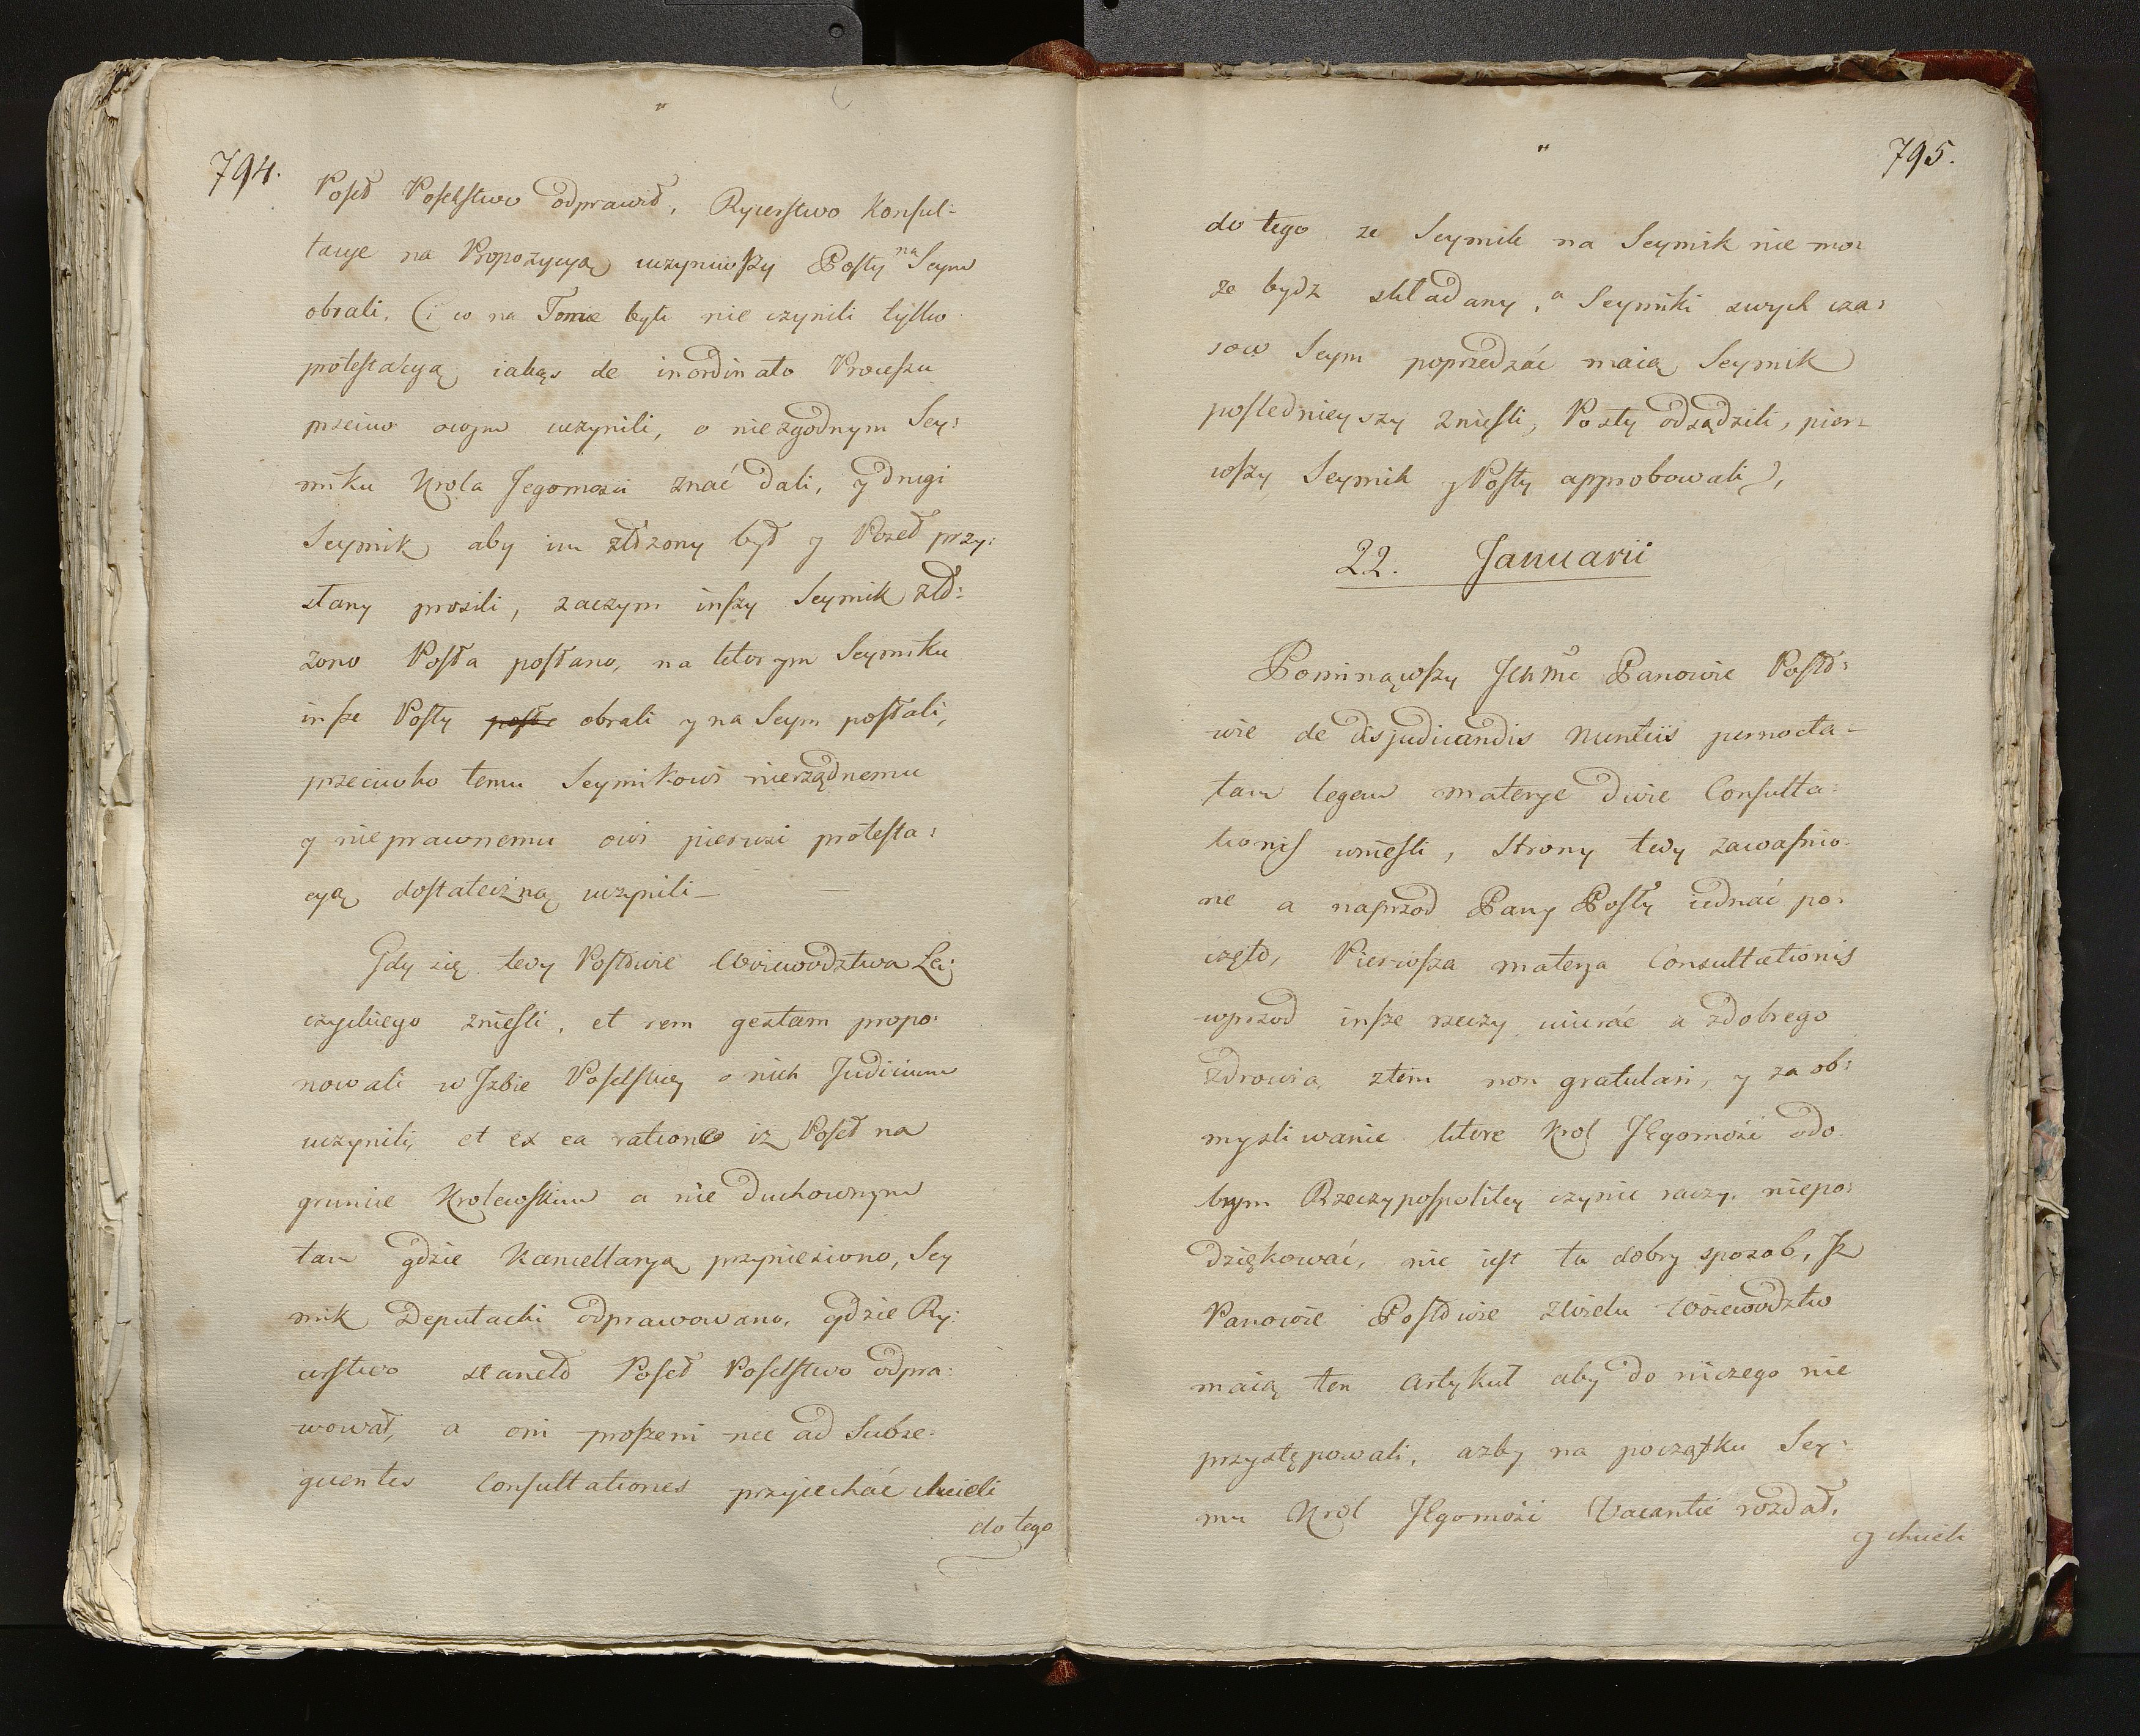 794.
Poseł Poselstwo odprawił, Rycerstwo Konsul-
tacye na Propozycyą uczyniwszy Posły na Seym
obrali. Ci co na Tomie byli nie czynili tylko
protestacyą iakąs de inordinato Processu
przeciw owym uczynili, o niezgodnym Sey:
miku Krola Jegomosci znać dali, y drugi
Seymik aby im złozony był y Poseł przy:
słany prosili, zaczym inszy Seymik zło:
zono Posła posłano, na ktorym Seymiku
insze Posły obrali y na Seym posłali,
przeciwko temu Seymikowi nierządnemu
y nieprawnemu owi pierwsi protesta:
cyą dostateczną uczynili —
Gdy się tedy Posłowie Woiewodztwa Lę:
czyckiego znieśli, et rem gestam propo:
nowali w Izbie Poselskiey o nich Judicium
uczynili, et ex ea ratione iz Poseł na
gruncie Krolewskim a nie Duchownym
tam gdzie Kancellaryą przyniesiono, Sey
mik Deputacki odprawowano, gdzie Ry:
cerstwo staneło Poseł Poselstwo odpra:
wował, a oni proszeni nec ad Subse-
quentes Consultationes przyiechać chcieli
do tego
795.
do tego ze Seymik na Seymik nie mo:
ze bydz składany, a Seymiki swych cza:
sow Seym poprzedzać maią Seymik
poslednieyszy znieśli, Posły odsądzili, pier-
wszy Seymik y Posły approbowali,
22. Januarii
Pominąwszy Ichmc Panowie Posło:
wie de disjudicandis Nuntiis pernocta-
tam legem materye dwie Consulta:
tionis wnieśli, Strony tedy zawasnio-
ne a naprzod Pany Posły iednać po:
częło, Pierwsza materya Consultationis
wprzod insze rzeczy ucierać a zdobrego
Zdrowia, ztem non gratulari, y za ob:
mysliwanie ktore Krol JEgomość o do:
brym Rzeczypospolitey czynic raczy, niepo:
dziękować, nie iest to dobry sposob, Iz
Panowie Posłowie zwielu Woiewodztw
maią ten artykuł aby do niczego nie
przystępowali, azby na początku Sey-
mu Krol JEgomość Vacantie rozdał,
y chcieli